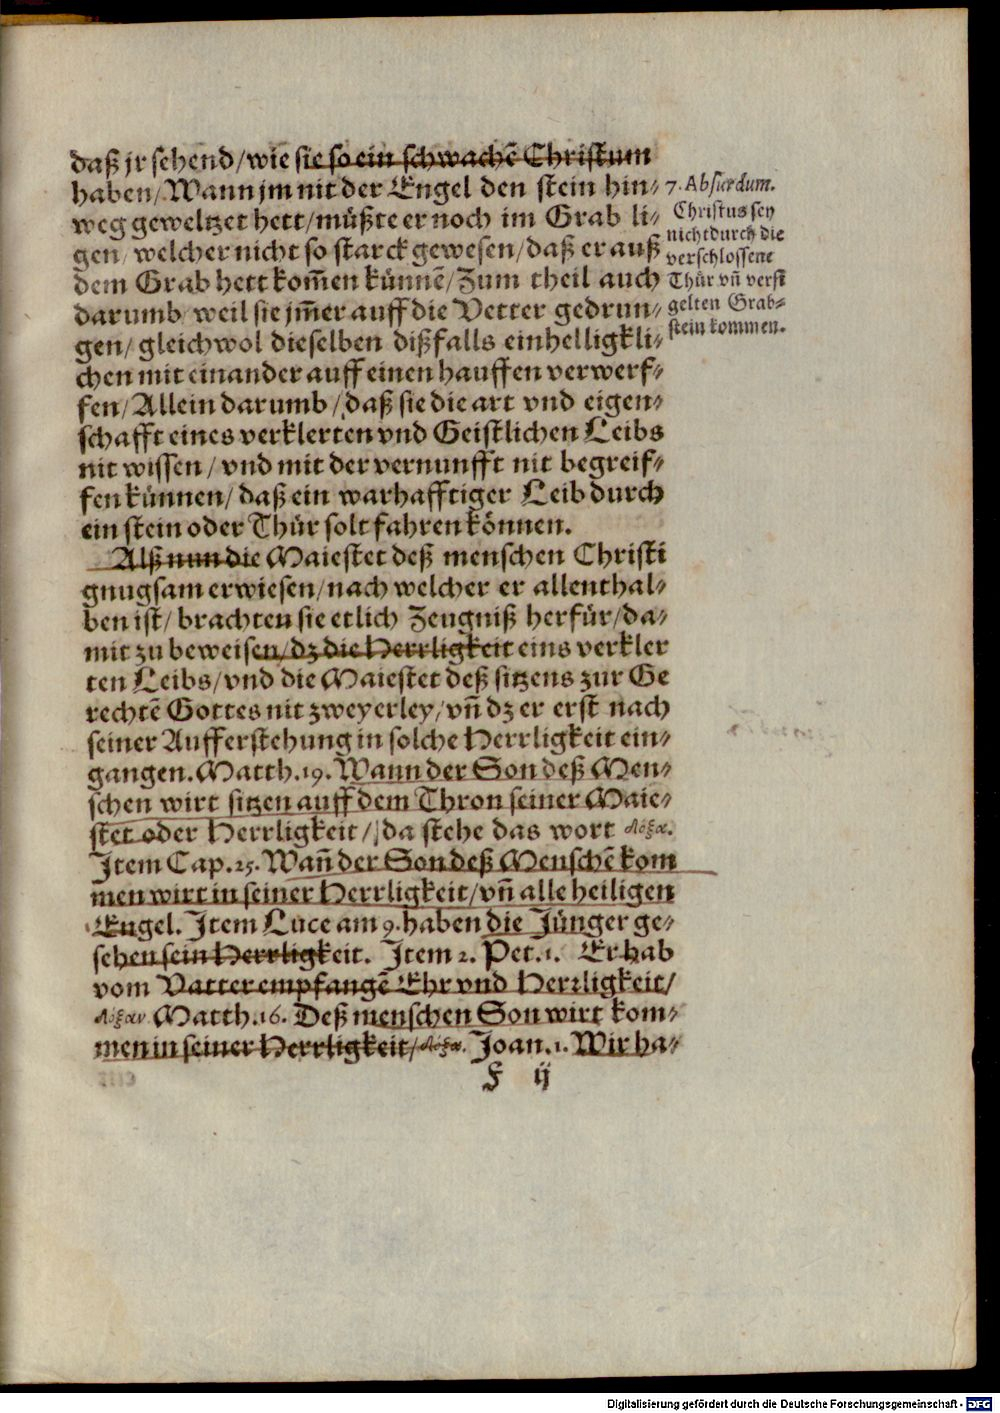 daß jr sehend/wie sie so ein schwachē Christum
haben/Wann jm nit der Engel den stein hin⸗
weg geweltzet hett/müßte er noch im Grab li⸗
gen/welcher nicht so starck gewesen/daß er auß
dem Grab hett kom̄en künnē/Zum theil auch
darumb weil sie jm̄er auff die Vetter gedrun⸗
gen/gleichwol dieselben dißfalls einhelligkli⸗
chen mit einander auff einen hauffen verwerf⸗
fen/Allein darumb/daß sie die art vnd eigen⸗
schafft eines verklerten vnd Geistlichen Leibs
nit wissen/vnd mit der vernunfft nit begreif⸗
fen künnen/daß ein warhafftiger Leib durch
ein stein oder Thür solt fahren können.
7. Absurdum.
Christus sey
nicht durch die
verschlossene
Thür vn̄ versi
gelten Grab⸗
stein kommen.
Alß nun die Maiestet deß menschen Christi
gnugsam erwiesen/nach welcher er allenthal⸗
ben ist/brachten sie etlich Zeugniß herfür/da⸗
mit zu beweisen/dz die Herrligkeit eins verkler
ten Leibs/vnd die Maiestet deß sitzens zur Ge
rechtē Gottes nit zweyerley/vn̄ dz er erst nach
seiner Aufferstehung in solche Herrligkeit ein⸗
gangen. Matth.19. Wann der Son deß Men⸗
schen wirt sitzen auff dem Thron seiner Maie⸗
stet oder Herrligkeit/da stehe das wort δόξα.
Item Cap.25. Wan̄ der Son deß Menschē kom
men wirt in seiner Herrligkeit/vn̄ alle heiligen
Engel. Item Luce am 9. haben die Jünger ge⸗
sehen sein Herrligkeit. Item 2. Pet.1. Er hab
vom Vatter empfangē Ehr vnd Herrligkeit/
δόξαν Matth.16. Deß menschen Son wirt kom⸗
men in seiner Herrligkeit/δόξα. Joan.1. Wir ha⸗
F ij
Digitalisierung gefördert durch die Deutsche Forschungsgemeinschaft - DFG